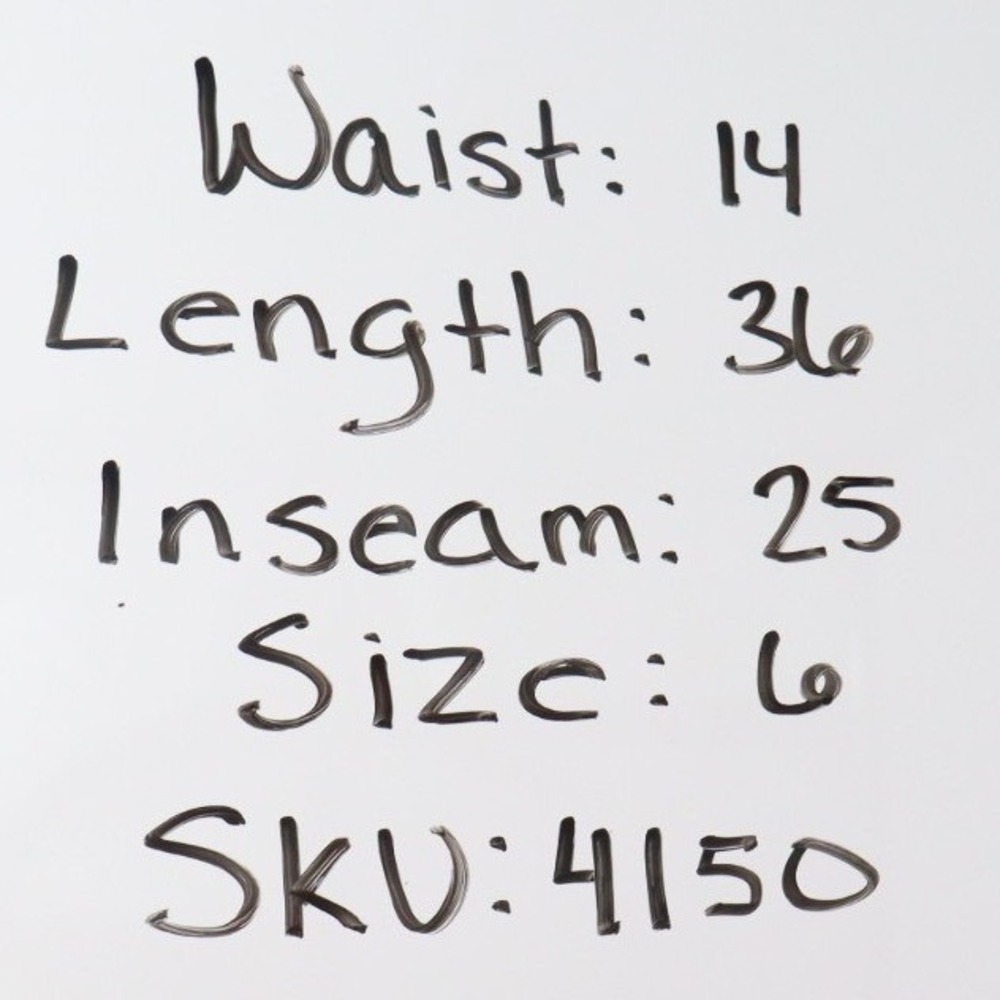 Waist: 14
Length: 36
Inseam: 25
Size: 6
SKU: 4150